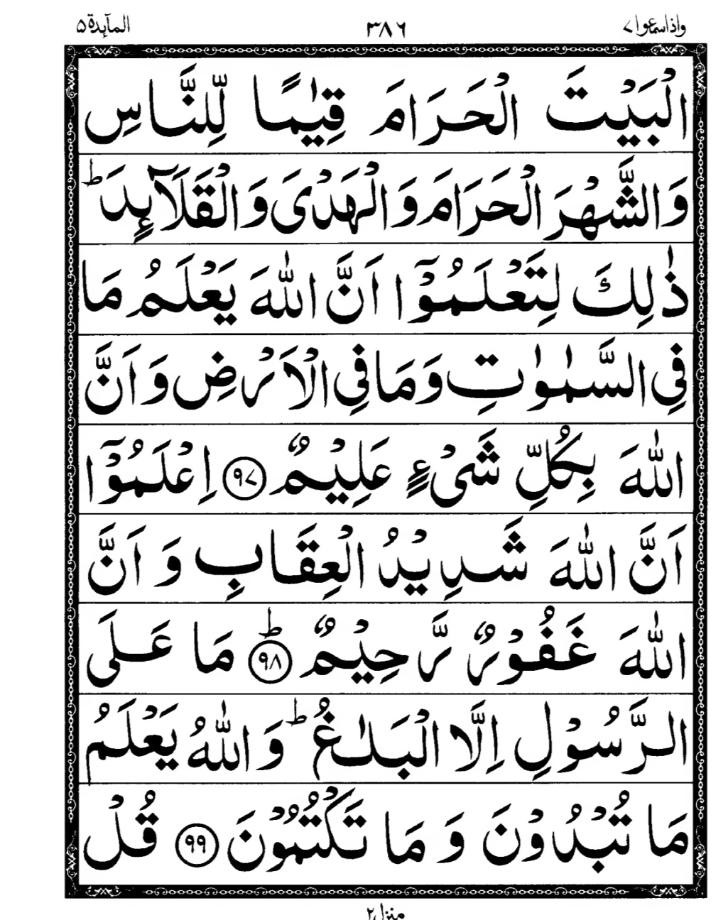 واذاسمعوا ٧ ٣٨٦ المآىدة ٥
الْبَيْتَ الْحَرَامَ قِيٰمًا لِّلنَّاسِ
وَالشَّهْرَ الْحَرَامَ وَالْهَدْىَ وَالْقَلَآىِٕدَ ؕ
ذٰلِكَ لِتَعْلَمُوْۤا اَنَّ اللّٰهَ يَعْلَمُ مَا
فِي السَّمٰوٰتِ وَمَا فِي الْاَرْضِ وَاَنَّ
اللّٰهَ بِكُلِّ شَىْءٍ عَلِيْمٌ ﴿۹۷﴾ اِعْلَمُوْۤا
اَنَّ اللّٰهَ شَدِيْدُ الْعِقَابِ وَ اَنَّ
اللّٰهَ غَفُوْرٌ رَّحِيْمٌ ؕ﴿۹۸﴾ مَا عَلَى
الرَّسُوْلِ اِلَّا الْبَلٰغُ ؕ وَاللّٰهُ يَعْلَمُ
مَا تُبْدُوْنَ وَ مَا تَكْتُمُوْنَ ﴿۹۹﴾ قُلْ
منزل ٢